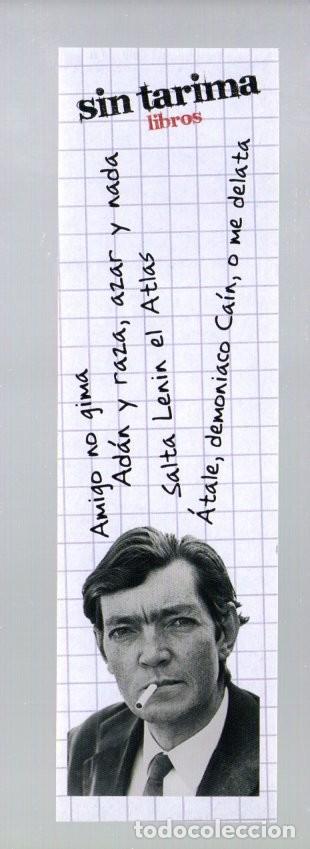 sin tarima
libros
Amigo no gima
Adán y raza, azar y nada
Salta Lenin el Atlas
Átale, demoniaco Caín, o me delata
todocoleccion